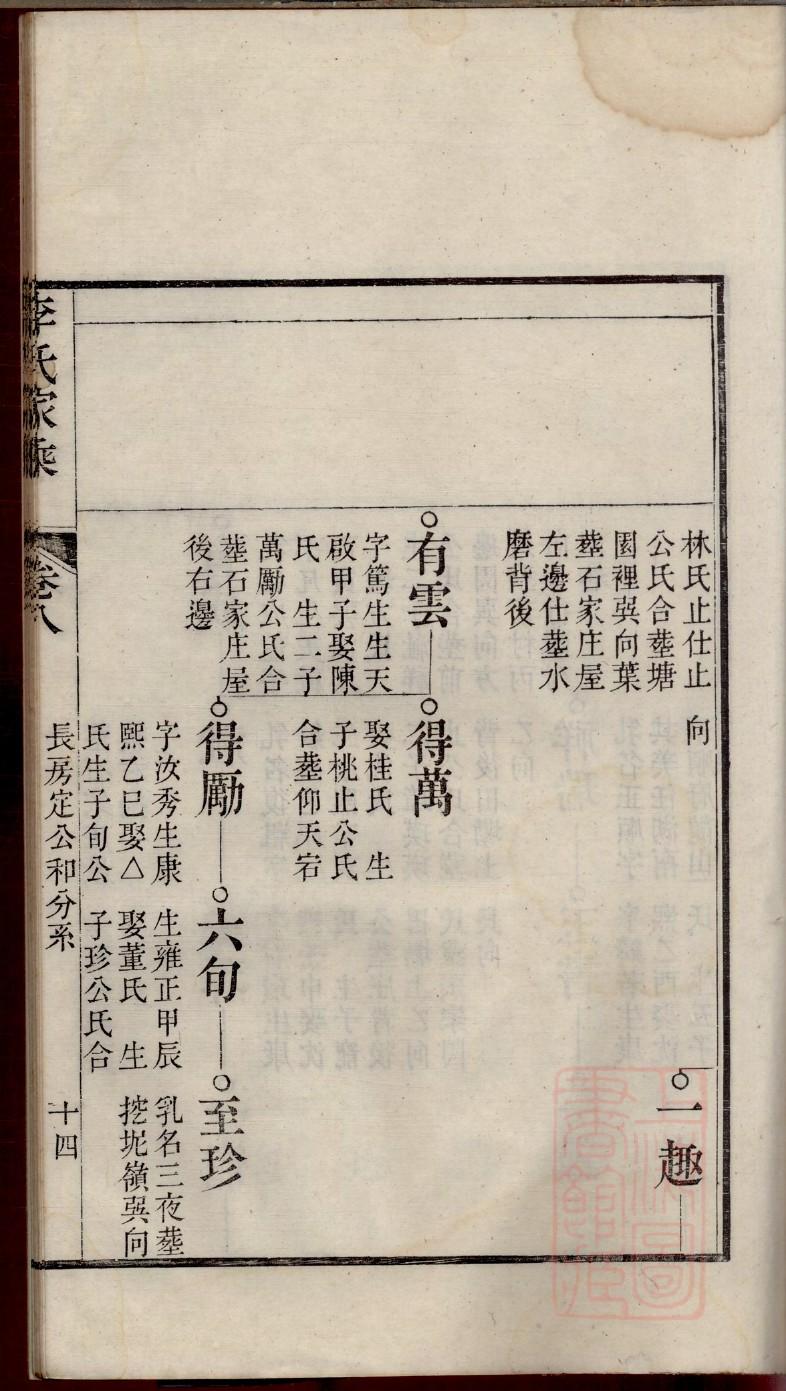 林氏止仕止
公氏合塟塘
園裡巽向葉
塟石家庄屋
左邊仕塟水
磨背後
向
一趣
有雲
字篤生生天
啟甲子娶陳
氏 生二子
萬勵公氏合
塟石家庄屋
後右邊
得萬
娶桂氏 生
子桃止公氏
合塟仰天宕
得勵
字汝秀生康
熙乙巳娶△
氏生子旬公
六旬
生雍正甲辰
娶董氏 生
子珍公氏合
至珍
乳名三夜塟
挖坭嶺巽向
李氏家乘
卷八
長房定公和分系
十四